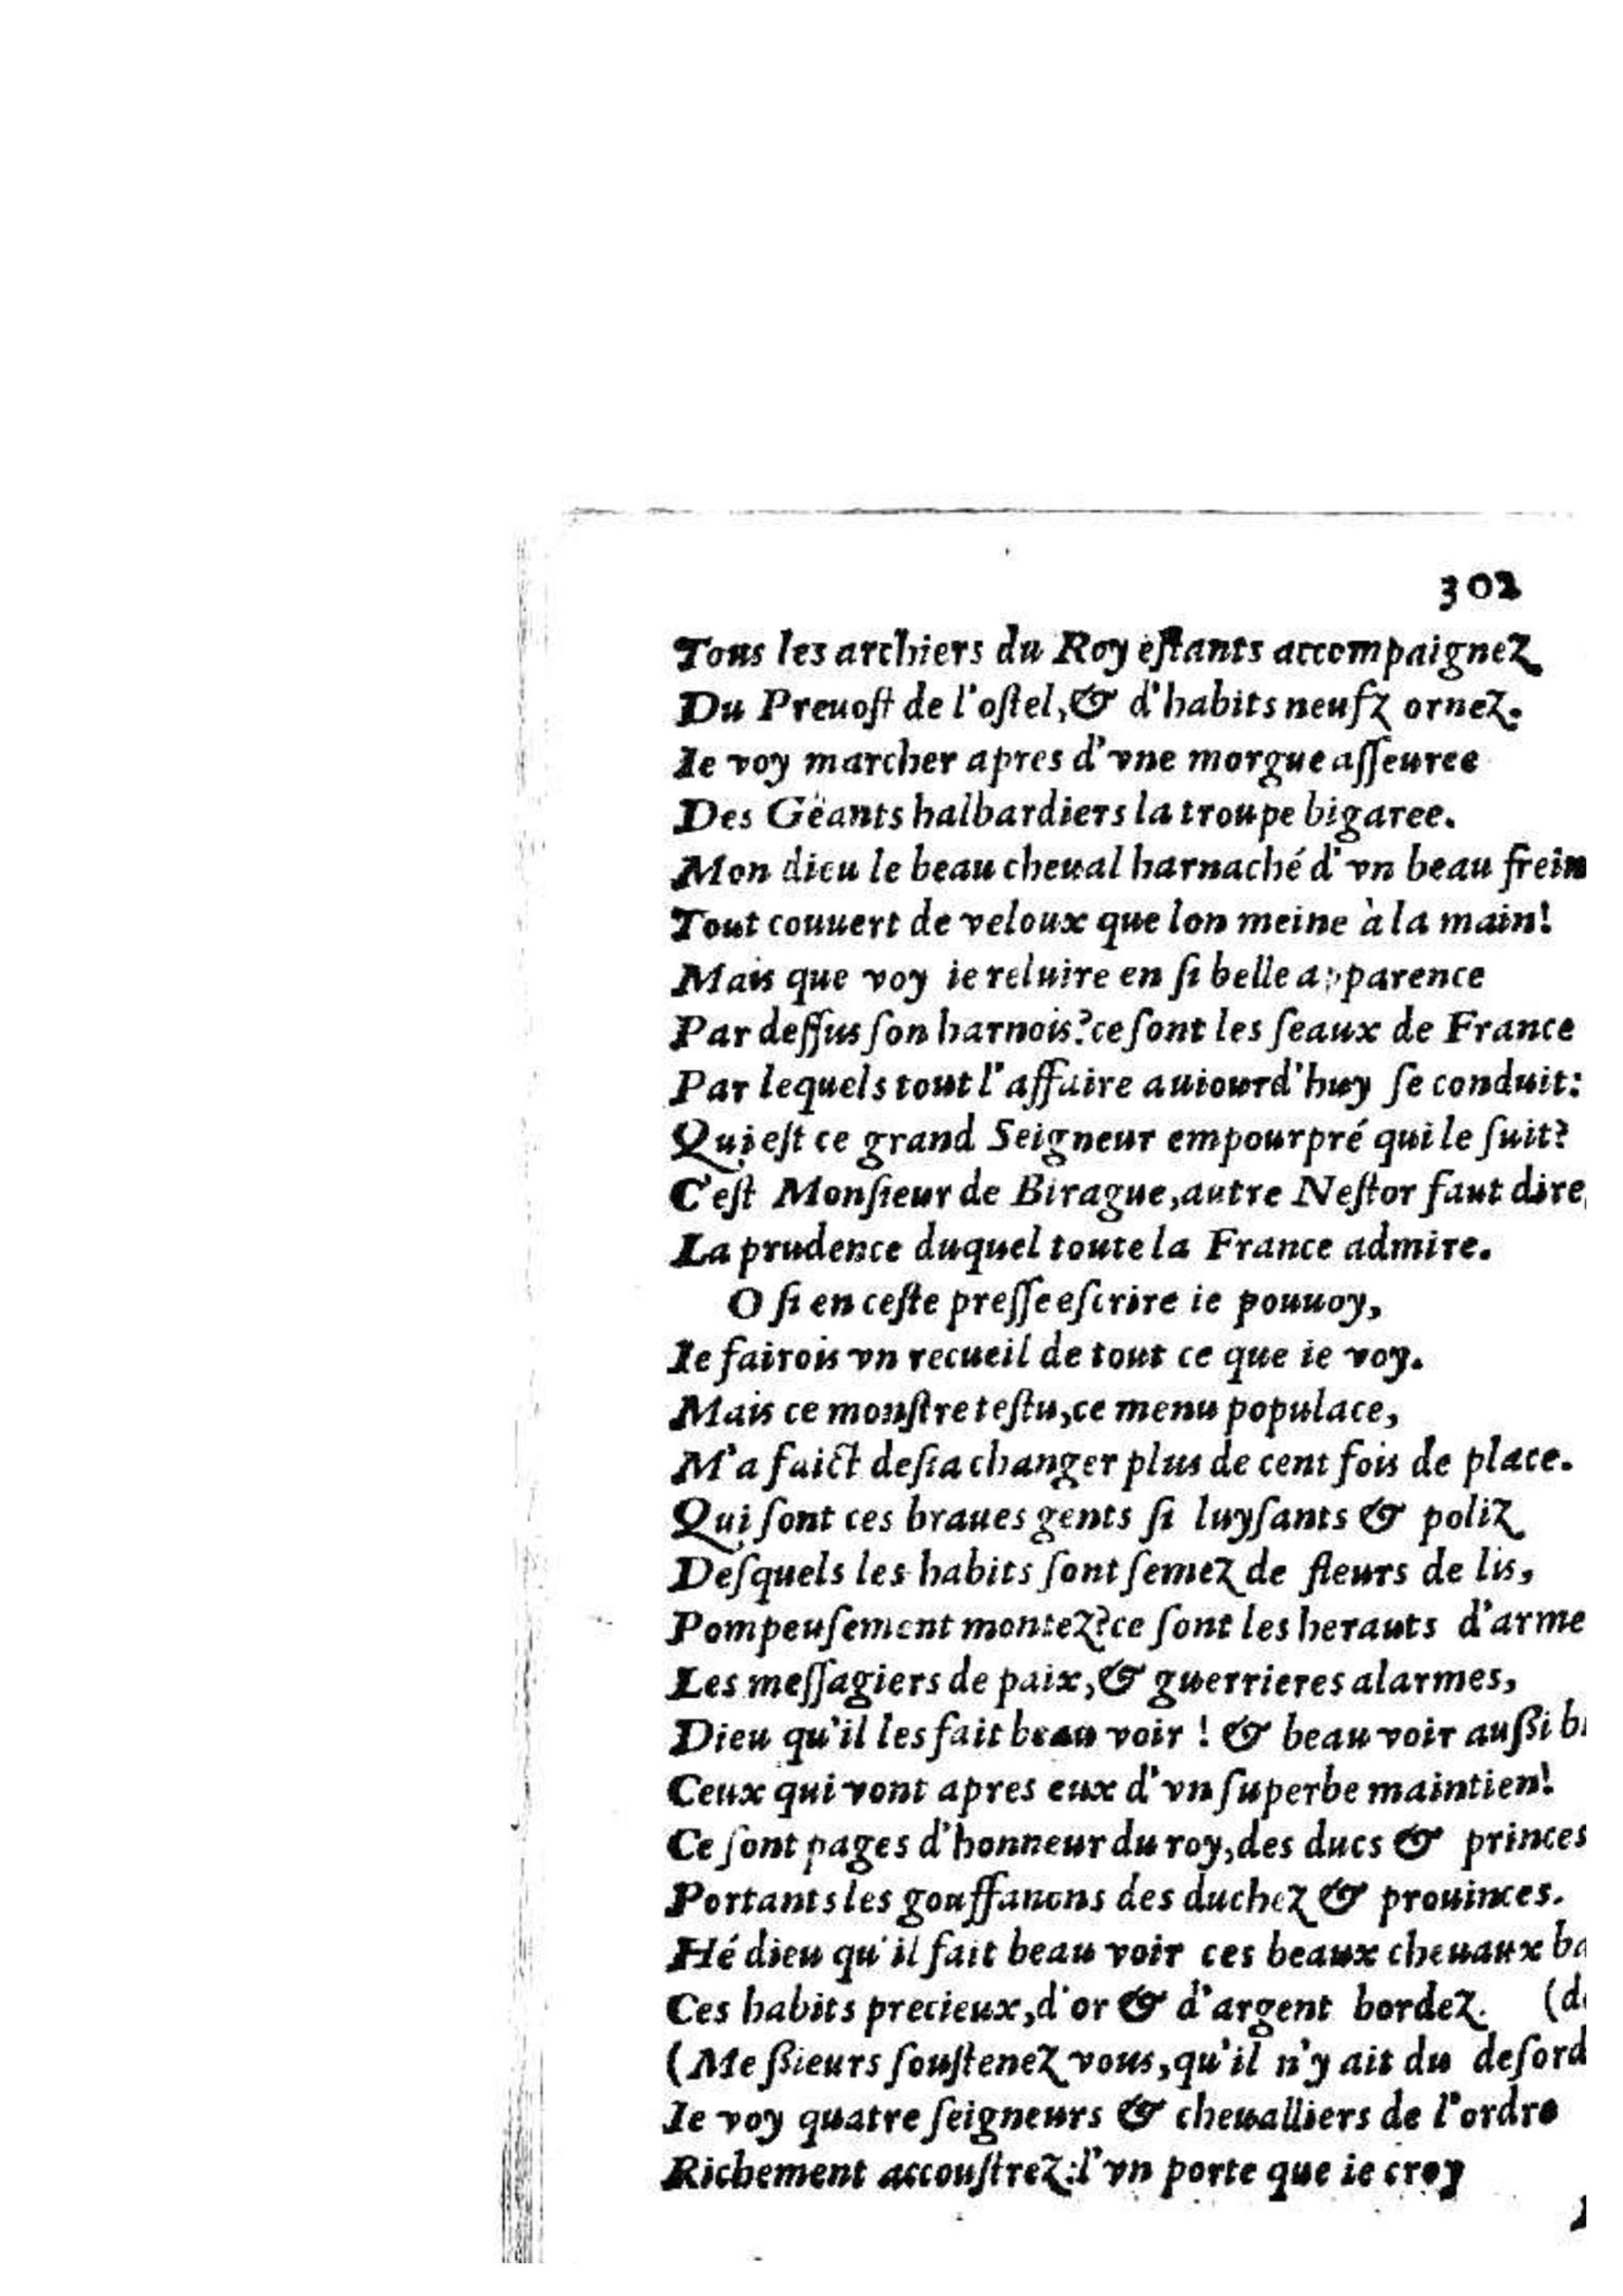 302
Tous les archiers du Roy eſtants accompaignez
Du Preuoſt de l'oſtel, & d'habits neufz ornez.
Ie voy marcher apres d'vne morgue aſſeuree
Des Gëants halbardiers la troupe bigaree.
Mon dieu le beau cheual harnaché d'vn beau frein
Tout couuert de veloux que lon meine à la main!
Mais que voy ie reluire en ſi belle apparence
Par deſſus ſon harnois? ce ſont les ſeaux de France
Par lequels tout l'affaire auiourd'huy ſe conduit:
Qui eſt ce grand Seigneur empourpré qui le ſuit?
C'eſt Monſieur de Birague, autre Neſtor faut dire,
La prudence duquel toute la France admire.
O ſi en ceſte preſſe eſcrire ie pouuoy,
Ie fairois vn recueil de tout ce que ie voy.
Mais ce monſtre teſtu, ce menu populace,
M'a faict deſia changer plus de cent fois de place.
Qui ſont ces braues gents ſi luyſants & poliz
Deſquels les habits ſont ſemez de fleurs de lis,
Pompeuſement montez? ce ſont les herauts d'arme
Les meſſagiers de paix, & guerrieres alarmes,
Dieu qu'il les fait beau voir ! & beau voir außi
Ceux qui vont apres eux d'vn ſuperbe maintien!
Ce ſont pages d'honneur du roy, des ducs & princes
Portants les gouffanons des duchez & prouinces.
Hé dieu qu'il fait beau voir ces beaux cheuaux
Ces habits precieux, d'or & d'argent bordez.
(Meßieurs ſouſtenez vous, qu'il n'y ait du deſord
Ie voy quatre ſeigneurs & cheualliers de l'ordre
Richement accouſtrez: l'vn porte que ie croy